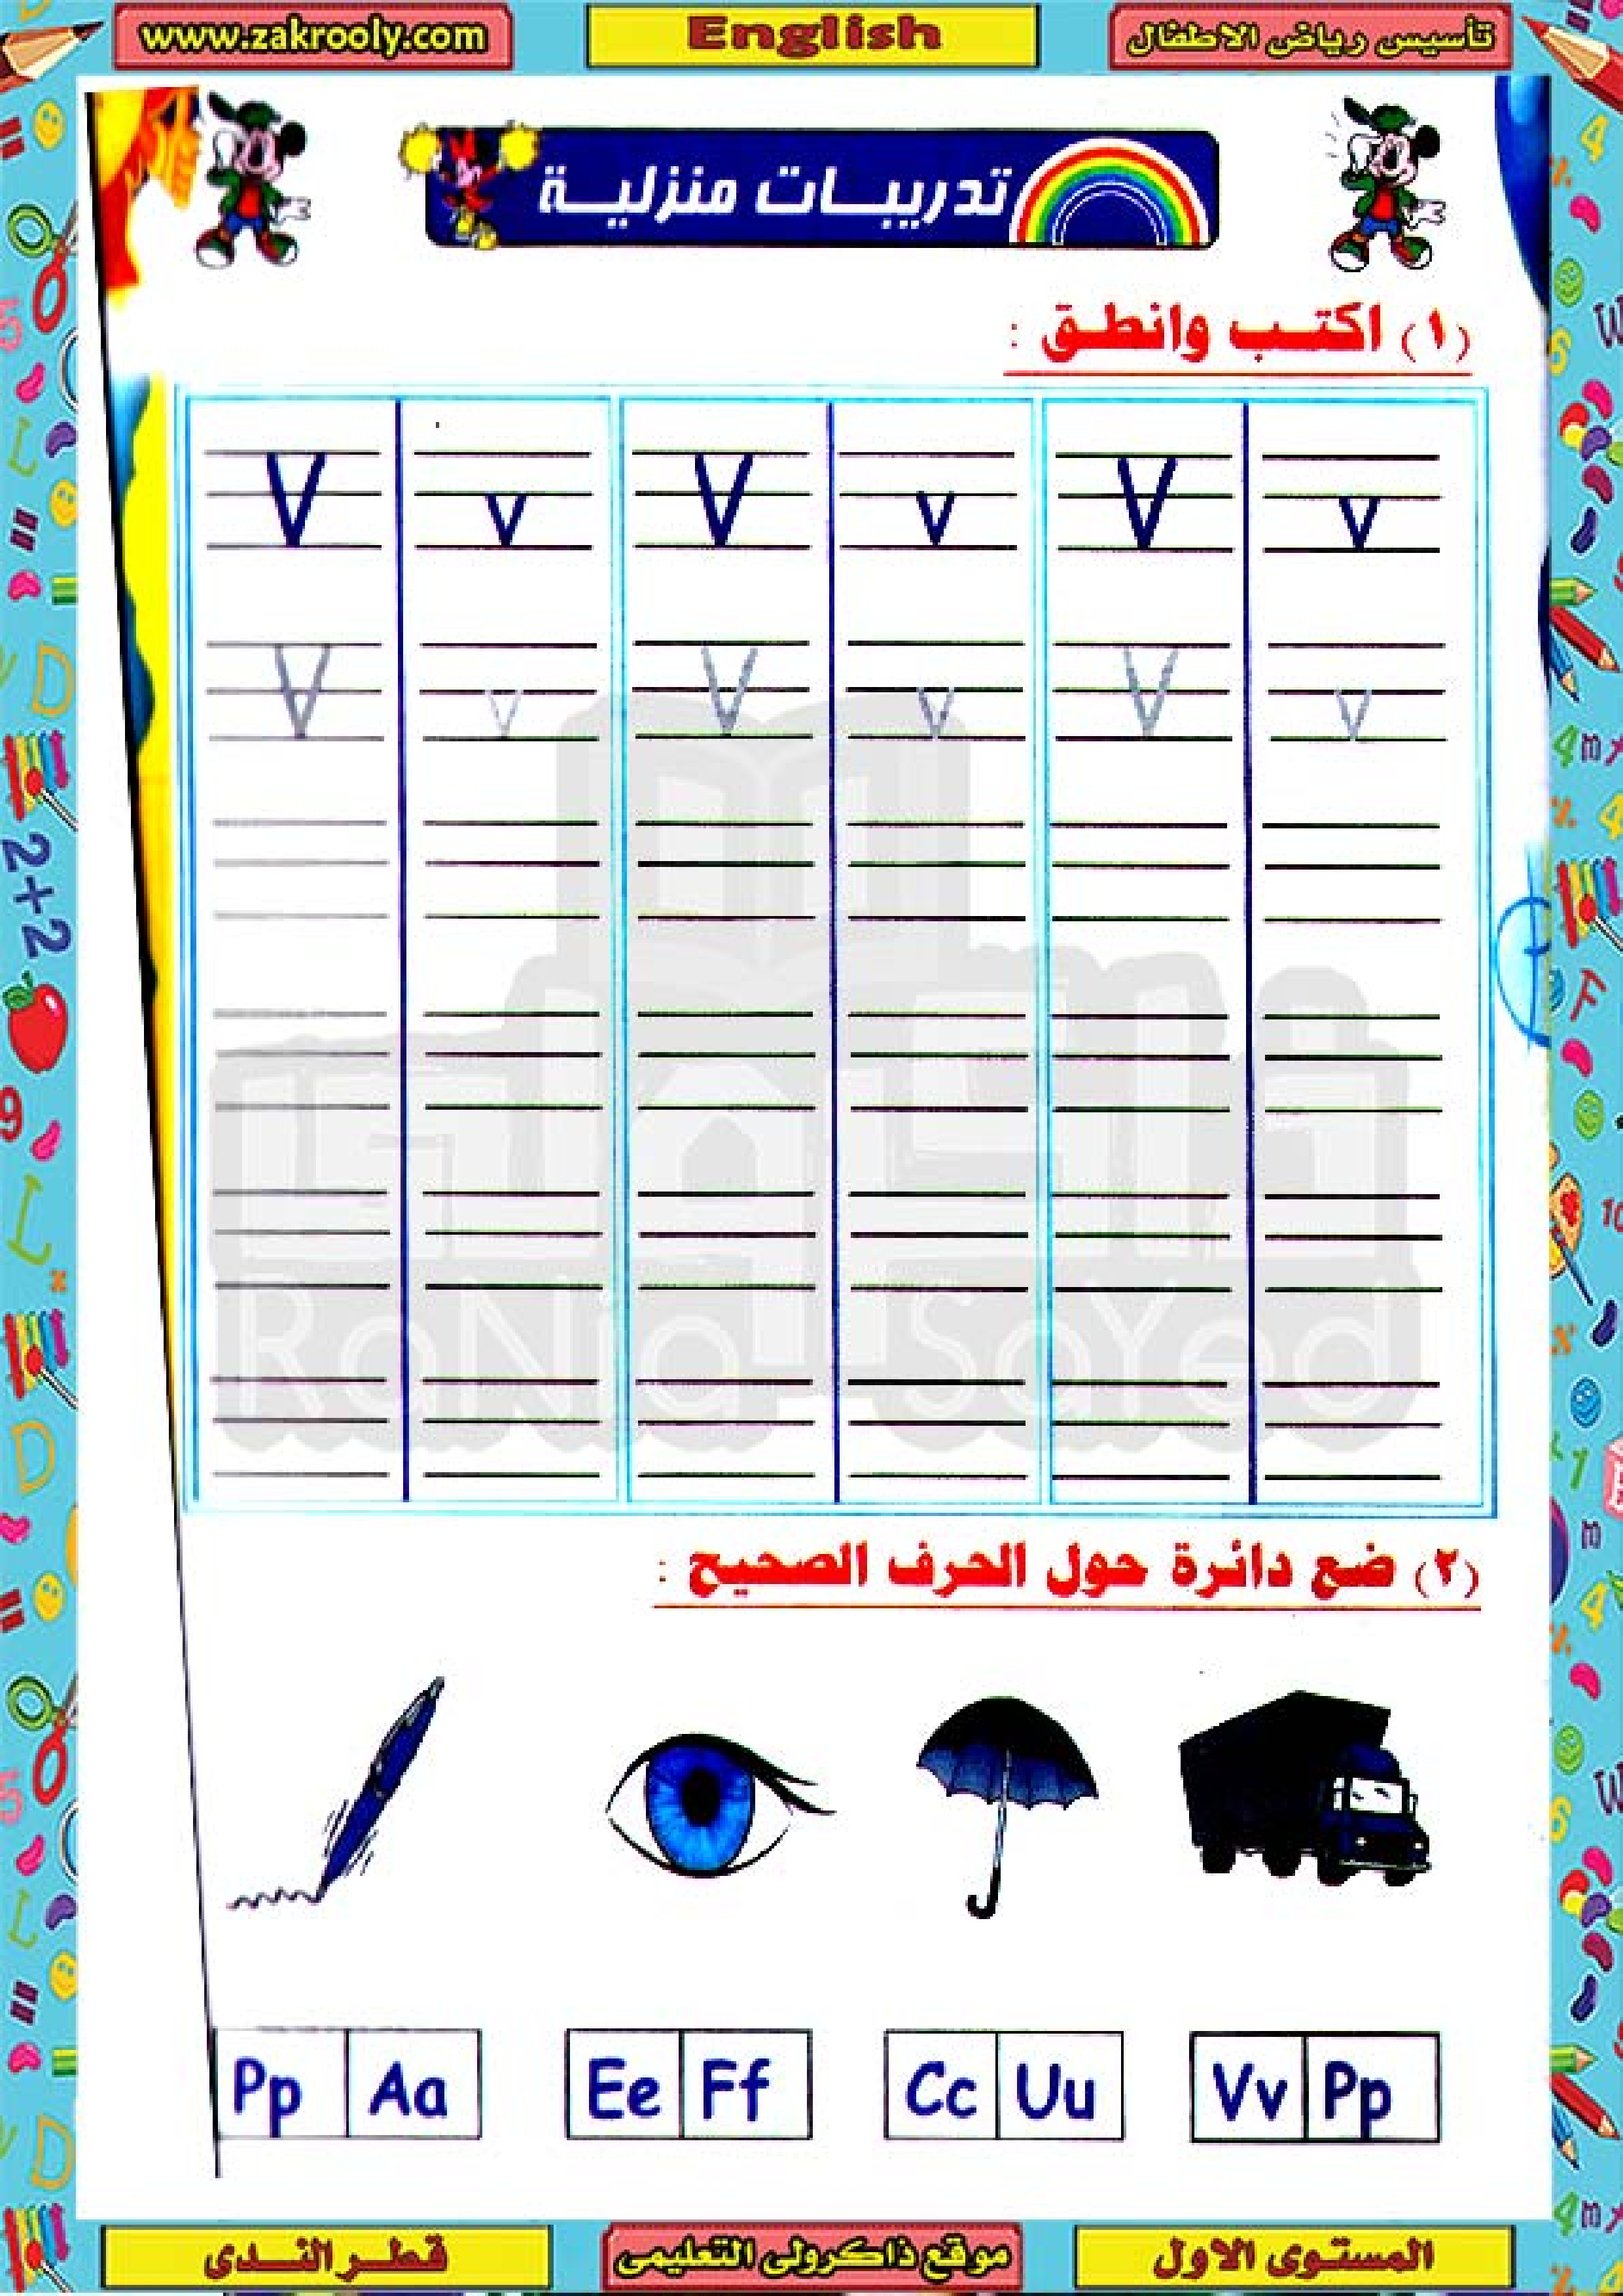 www.zakrooly.com English تأسيس رياض الاطفال
تدريبات منزلية
(١) اكتب وانطق :
V v V v V v
V v V v V v
RaNia SaYed
(٢) ضع دائرة حول الحرف الصحيح :
Pp Aa Ee Ff Cc Uu Vv Pp
قطر الندى موقع ذاكرولى التعليمى المستوى الاول